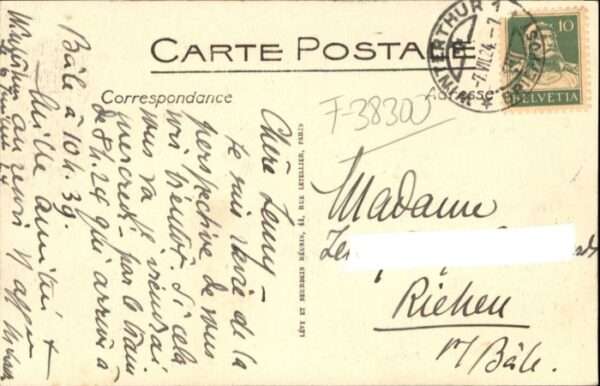 CARTE POSTALE
Correspondance
Adresse
WINTERTHUR 1
-7.VII.24.-7
BRIEFPOS
10
HELVETIA
F-38300
Chère Jenny –
Je suis ravie de la
perspective de vous
voir bientôt. Si cela
vous va je viendrai
mercredi – par le train
de 8h.24 qui arrive à
Bâle à 10h.39.
Mille amitiés &
au revoir
LÉVY ET NEURDEIN RÉUNIS, 44, RUE LETELLIER, PARIS
Madame
Riehen
Bâle.